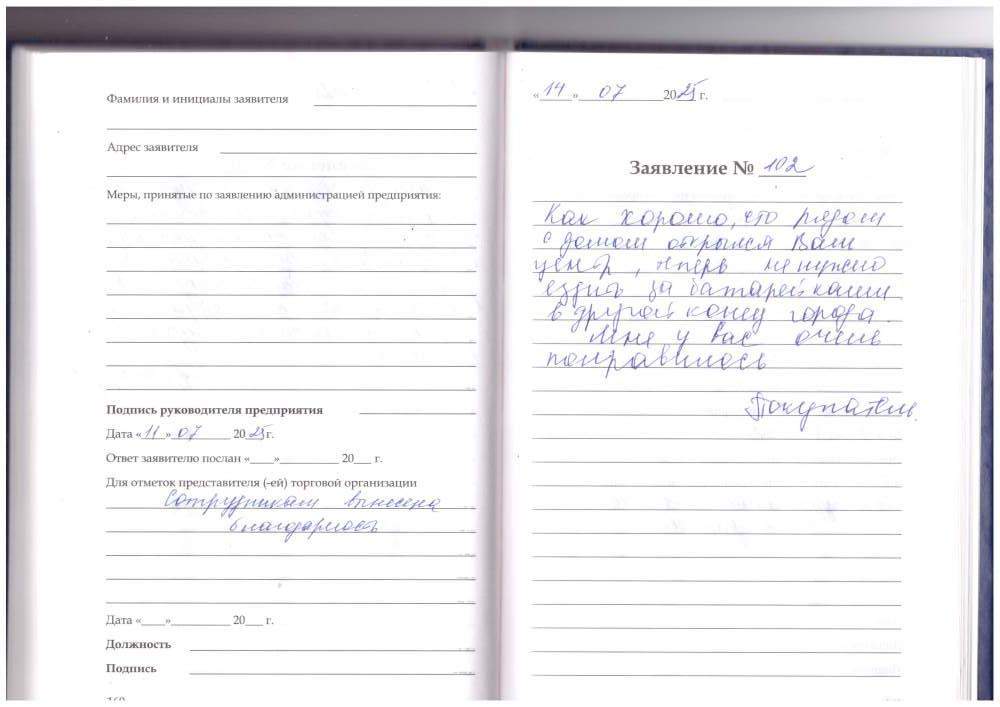 Фамилия и инициалы заявителя
Адрес заявителя
Меры, принятые по заявлению администрацией предприятия:
Подпись руководителя предприятия
Дата «11» 07 2025г.
Ответ заявителю послан «____»__________ 20___ г.
Для отметок представителя (-ей) торговой организации
Сотрудникам вынесена
благодарность
Дата «____»__________ 20___ г.
Должность
Подпись
«14» 07 2025 г.
Заявление № 102
Как хорошо, что рядом
с домом открылся Ваш
центр, теперь не нужно
ездить за батарейками
в другой конец города.
Мне у вас очень
понравилось
Покупатель